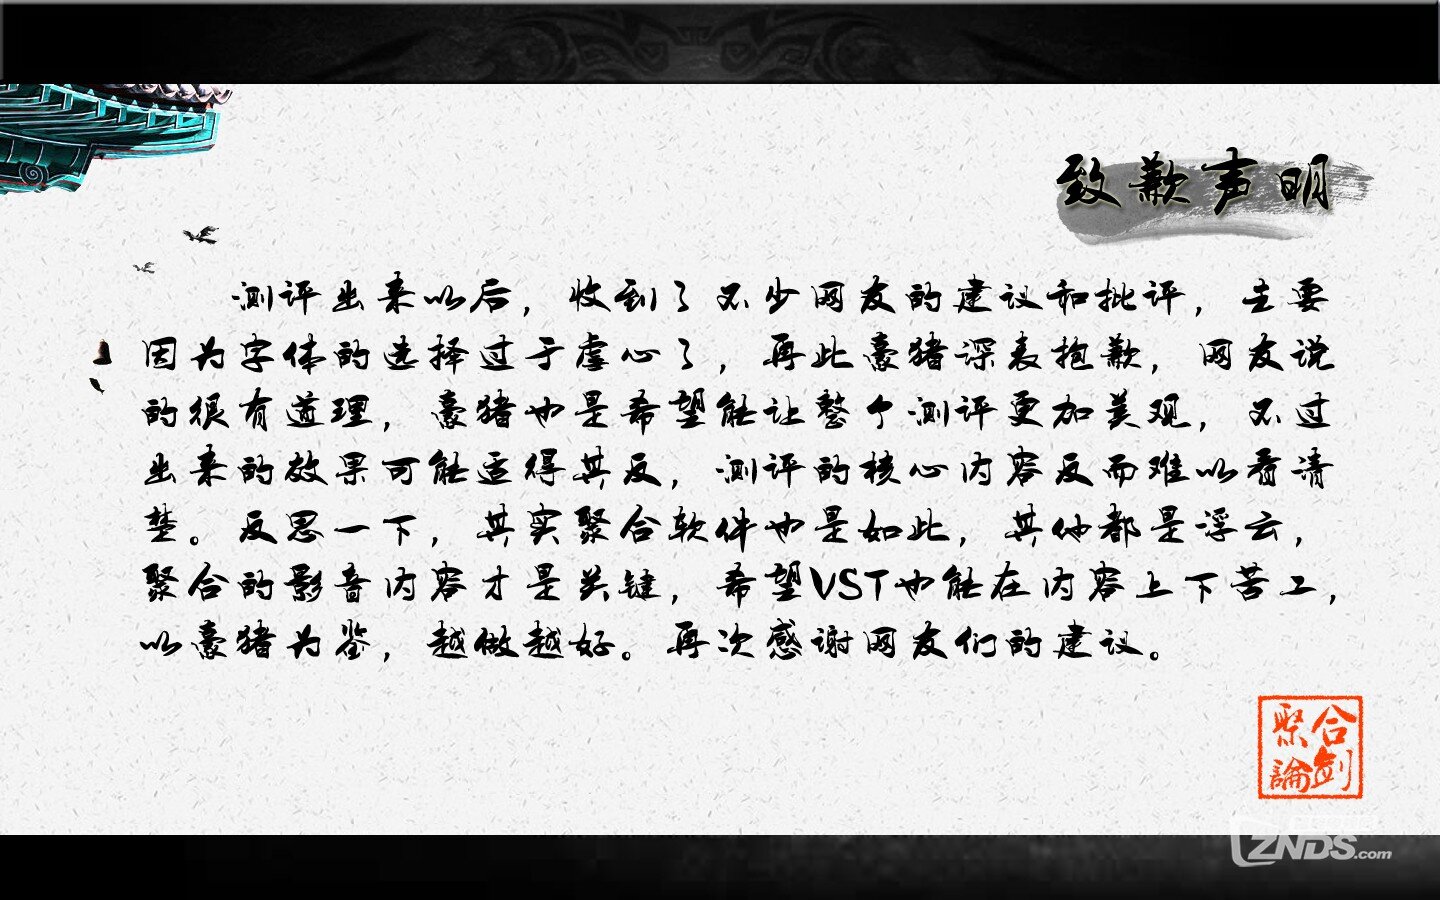 致歉声明
测评出来以后，收到了不少网友的建议和批评，主要
因为字体的选择过于虐心了，再此豪猪深表抱歉，网友说
的很有道理，豪猪也是希望能让整个测评更加美观，不过
出来的效果可能适得其反，测评的核心内容反而难以看清
楚。反思一下，其实聚合软件也是如此，其他都是浮云，
聚合的影音内容才是关键，希望VST也能在内容上下苦工，
以豪猪为鉴，越做越好。再次感谢网友们的建议。
聚合
論劍
ZNDS.com